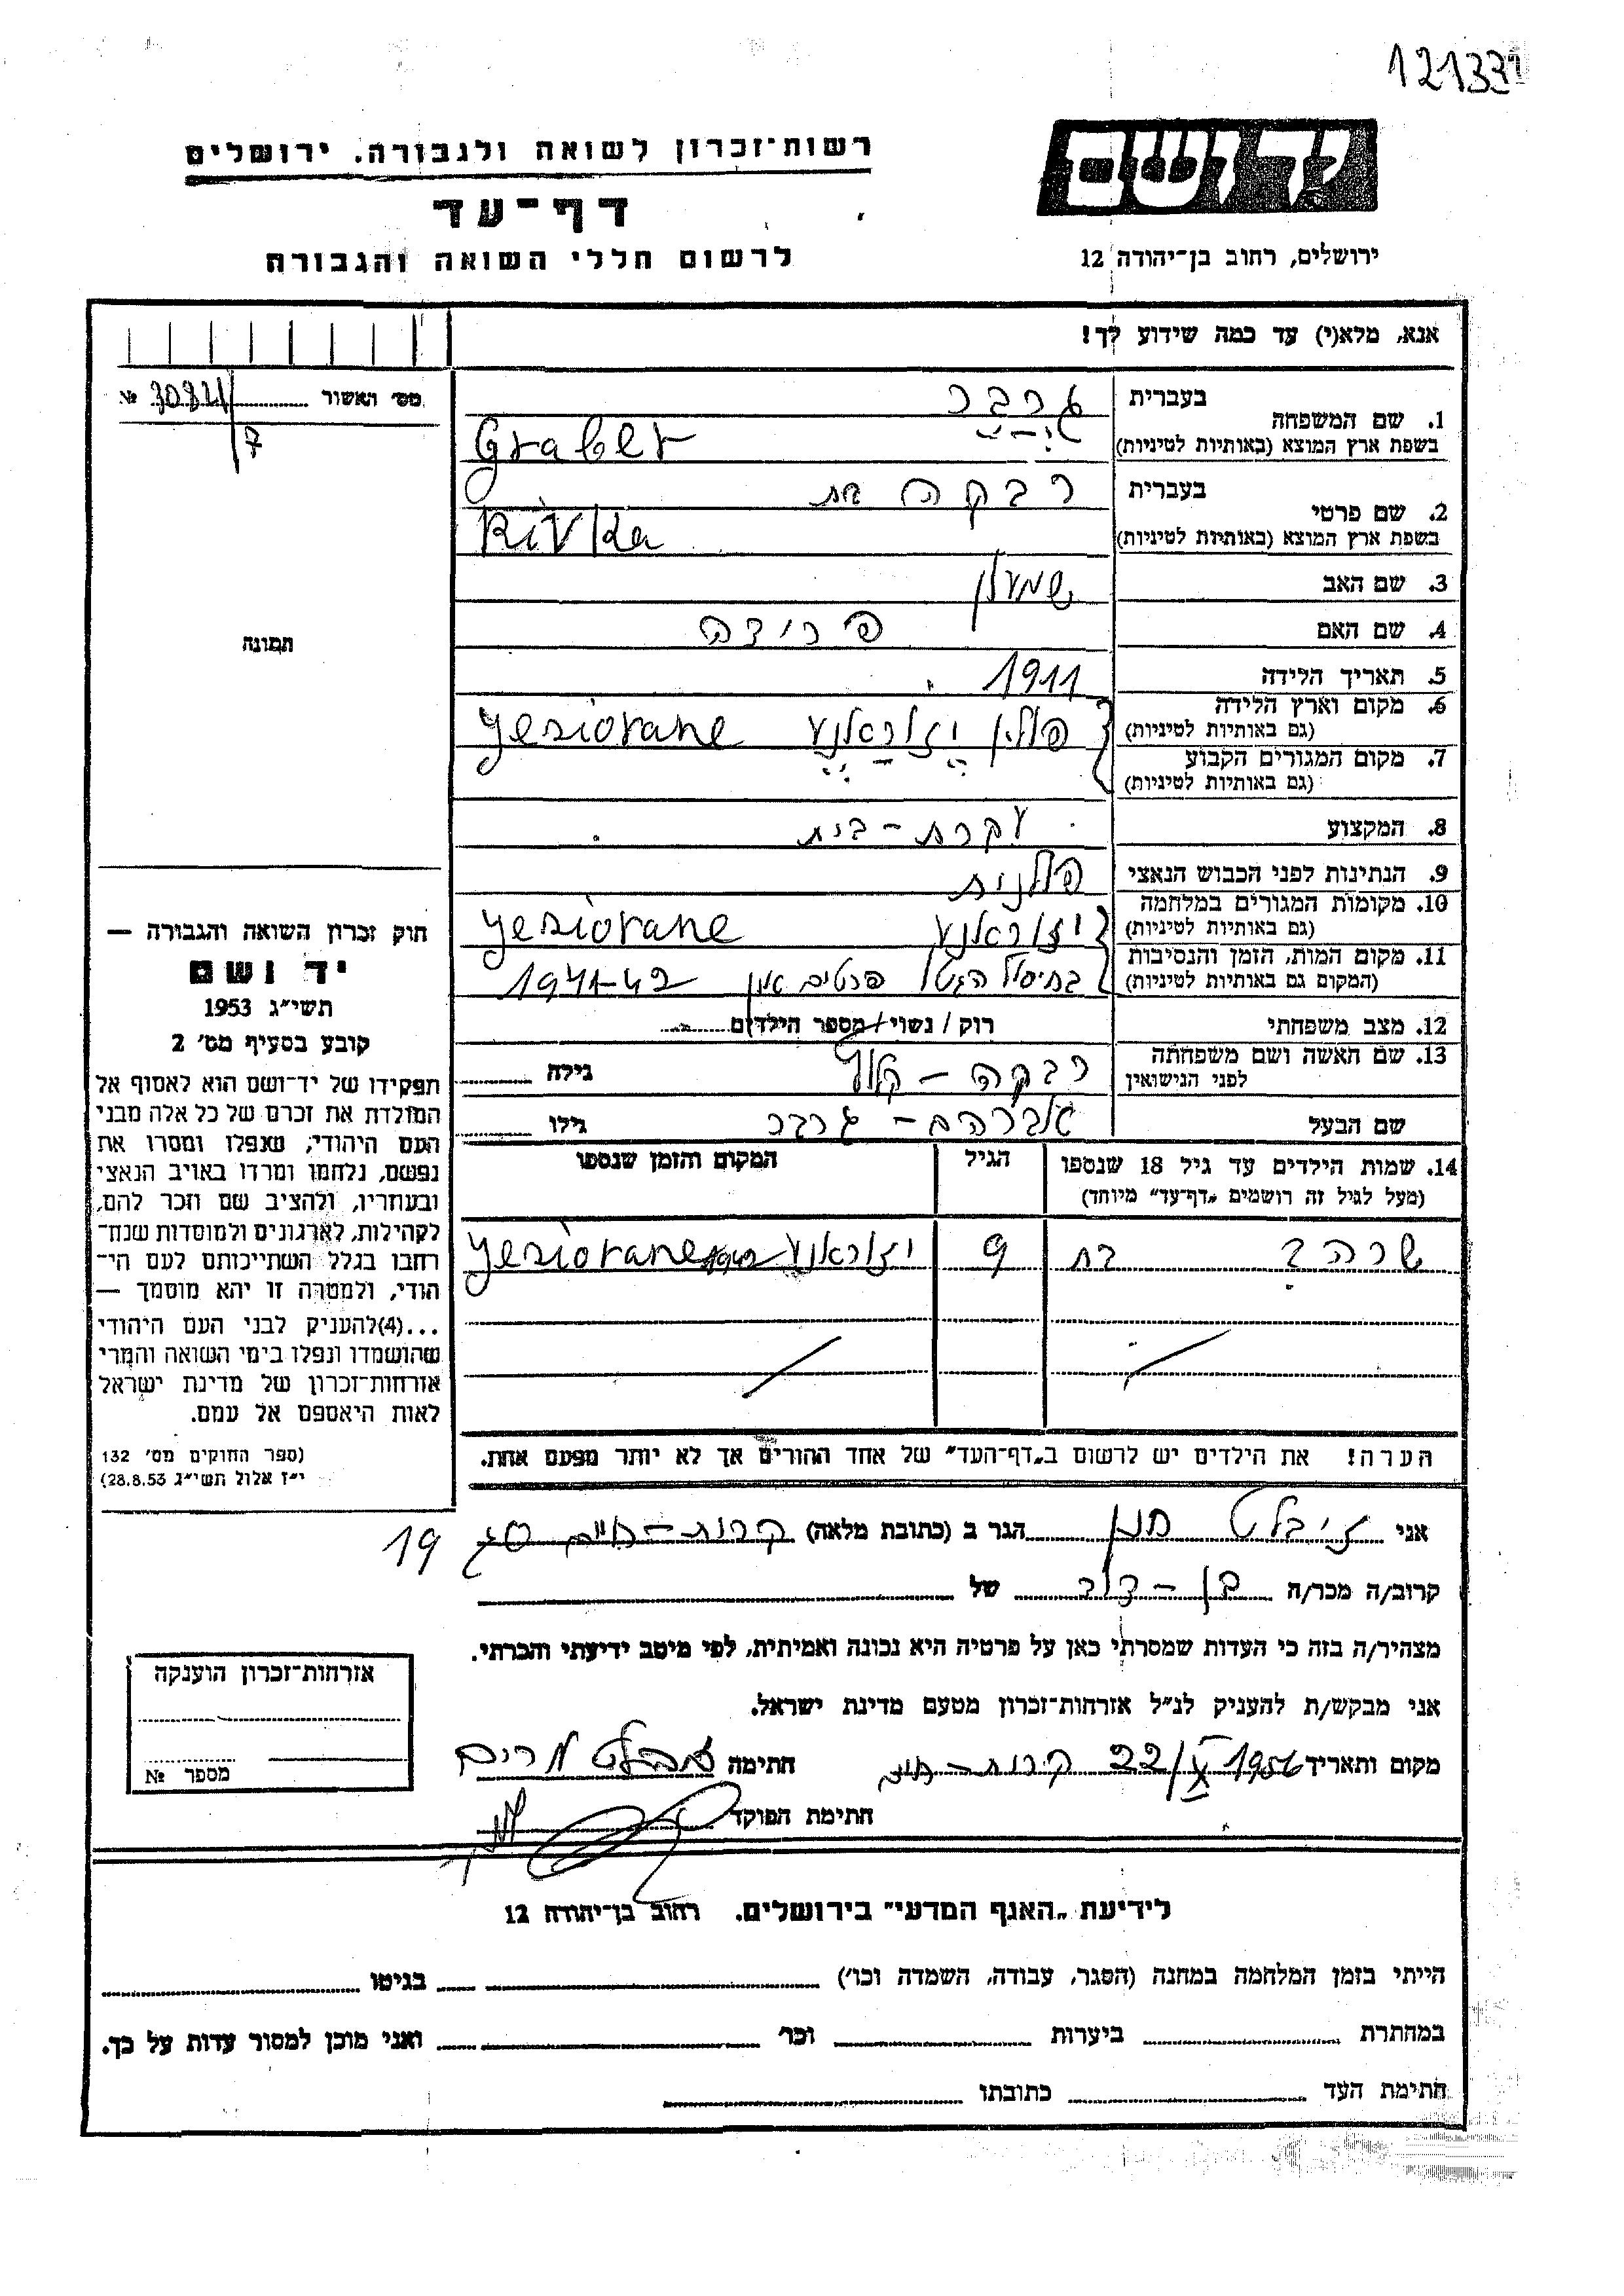 121331
רשות־זכרון לשואה ולגבורה. ירושלים
יד ושם
דף־עד
לרשום חללי השואה והגבורה
ירושלים, רחוב בן־יהודה 12
אנא, מלא(י) עד כמה שידוע לך!
מס׳ האשור № 
7
1. שם המשפחה
בעברית גרבר
בשפת ארץ המוצא (באותיות לטיניות) Graber
2. שם פרטי
בעברית רבקה בת
בשפת ארץ המוצא (באותיות לטיניות) Rivka
3. שם האב שמעון
4. שם האם פרידה
תמונה
5. תאריך הלידה 1911
6. מקום וארץ הלידה
(גם באותיות לטיניות) פולין יזוראנע Yeziorane
7. מקום המגורים הקבוע
(גם באותיות לטיניות)
8. המקצוע עקרת-בית
9. הנתינות לפני הכבוש הנאצי פולנית
10. מקומות המגורים במלחמה
(גם באותיות לטיניות) יזוראנע Yeziorane
11. מקום המות, הזמן והנסיבות
(המקום גם באותיות לטיניות) בחיסול הגטו פרטים אין 1941-42
12. מצב משפחתי רוק / נשוי / מספר הילדים
13. שם האשה ושם משפחתה
לפני הנישואין רבקה - גילה
שם הבעל אברהם - גרבר גילו
14. שמות הילדים עד גיל 18 שנספו
(מעל לגיל זה רושמים „דף־עד״ מיוחד)
הגיל
המקום והזמן שנספו
שרה בת 9 יזוראנע Yeziorane
הערה! את הילדים יש לרשום ב„דף־העד״ של אחד ההורים אך לא יותר מפעם אחת.
חוק זכרון השואה והגבורה —
יד ושם
תשי״ג 1953
קובע בסעיף מס׳ 2
תפקידו של יד־ושם הוא לאסוף אל
המולדת את זכרם של כל אלה מבני
העם היהודי, שנפלו ומסרו את
נפשם, נלחמו ומרדו באויב הנאצי
ובעוזריו, ולהציב שם וזכר להם,
לקהילות, לארגונים ולמוסדות שנח־
רחבו בגלל השתייכותם לעם הי־
הודי, ולמטרה זו יהא מוסמך —
...(4)להעניק לבני העם היהודי
שהושמדו ונפלו בימי השואה והמרי
אזרחות־זכרון של מדינת ישראל
לאות היאספם אל עמם.
(ספר החוקים מס׳ 132
י״ז אלול תשי״ג 28.8.53)
אני זיבלט חנן הגר ב (כתובת מלאה) קרית-חיים 19
קרוב/ה מכר/ה בן-דוד של
מצהיר/ה בזה כי העדות שמסרתי כאן על פרטיה היא נכונה ואמיתית, לפי מיטב ידיעתי והכרתי.
אני מבקש/ת להעניק לנ״ל אזרחות־זכרון מטעם מדינת ישראל.
מקום ותאריך 22/X 1956 קרית-חיים חתימה זיבלט מרים
חתימת הפוקד
אזרחות־זכרון הוענקה
מספר №
לידיעת „האגף המדעי״ בירושלים. רחוב בן־יהודה 12
הייתי בזמן המלחמה במחנה (הסגר, עבודה, השמדה וכו׳) בגיטו
במחתרת ביערות וכו׳ ואני מוכן למסור עדות על כך.
חתימת העד כתובתו